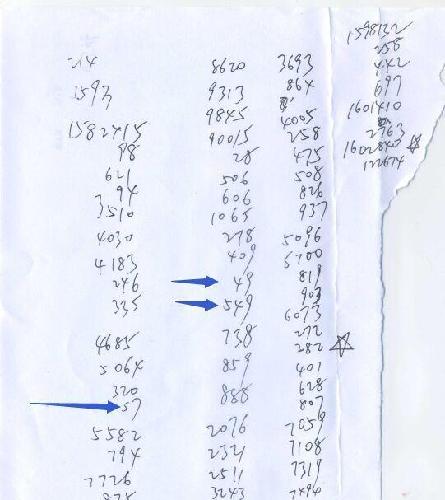 214
1593
1582415
98
621
94
3510
4030
4183
246
335
4685
5064
320
57
5582
794
7726
8620
9313
9845
90015
28
506
606
1065
278
409
49
549
738
859
888
2076
2321
2511
3243
3693
864
4005
258
475
508
826
937
5096
5700
819
903
6073
272
282
401
628
807
7059
7108
7319
7494
1598132
258
442
697
1601410
2763
1602840
122674